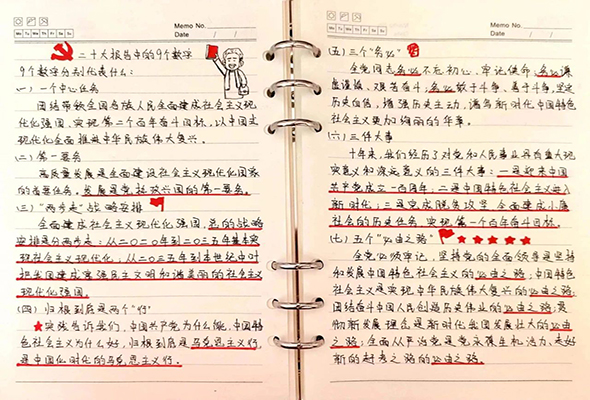 Memo No.
Mo Tu We Th Fr Sa Su
Date / /
二十大报告中的9个数字
9个数字分别代表什么:
(一) 一个中心任务
团结带领全国各族人民全面建成社会主义现
代化强国,实现第二个百年奋斗目标,以中国式
现代化全面推进中华民族伟大复兴。
(二) 第一要务
高质量发展是全面建设社会主义现代化国家
的首要任务。发展是党执政兴国的第一要务。
(三)“两步走”战略安排
全面建成社会主义现代化强国,总的战略
安排是分两步走:从二〇二〇年到二〇三五年基本实
现社会主义现代化;从二〇三五年到本世纪中叶
把我国建成富强民主文明和谐美丽的社会主义
现代化强国。
(四) 归根到底是两个“行”
实践告诉我们,中国共产党为什么能,中国特
色社会主义为什么好,归根到底是马克思主义行,
是中国化时代化的马克思主义行。
Memo No.
Mo Tu We Th Fr Sa Su
Date / /
(五) 三个“务必”
全党同志务必不忘初心、牢记使命,务必谦
虚谨慎、艰苦奋斗,务必敢于斗争、善于斗争,坚定
历史自信,增强历史主动,谱写新时代中国特色
社会主义更加绚丽的华章。
(六) 三件大事
十年来,我们经历了对党和人民事业具有重大现
实意义和深远意义的三件大事:一是迎来中国
共产党成立一百周年,二是中国特色社会主义进入
新时代,三是完成脱贫攻坚、全面建成小康
社会的历史任务,实现第一个百年奋斗目标。
(七) 五个“必由之路”
全党必须牢记,坚持党的全面领导是坚持
和发展中国特色社会主义的必由之路;中国特色
社会主义是实现中华民族伟大复兴的必由之路;
团结奋斗是中国人民创造历史伟业的必由之路;贯
彻新发展理念是新时代我国发展壮大的必由
之路;全面从严治党是党永葆生机活力、走好
新的赶考之路的必由之路。